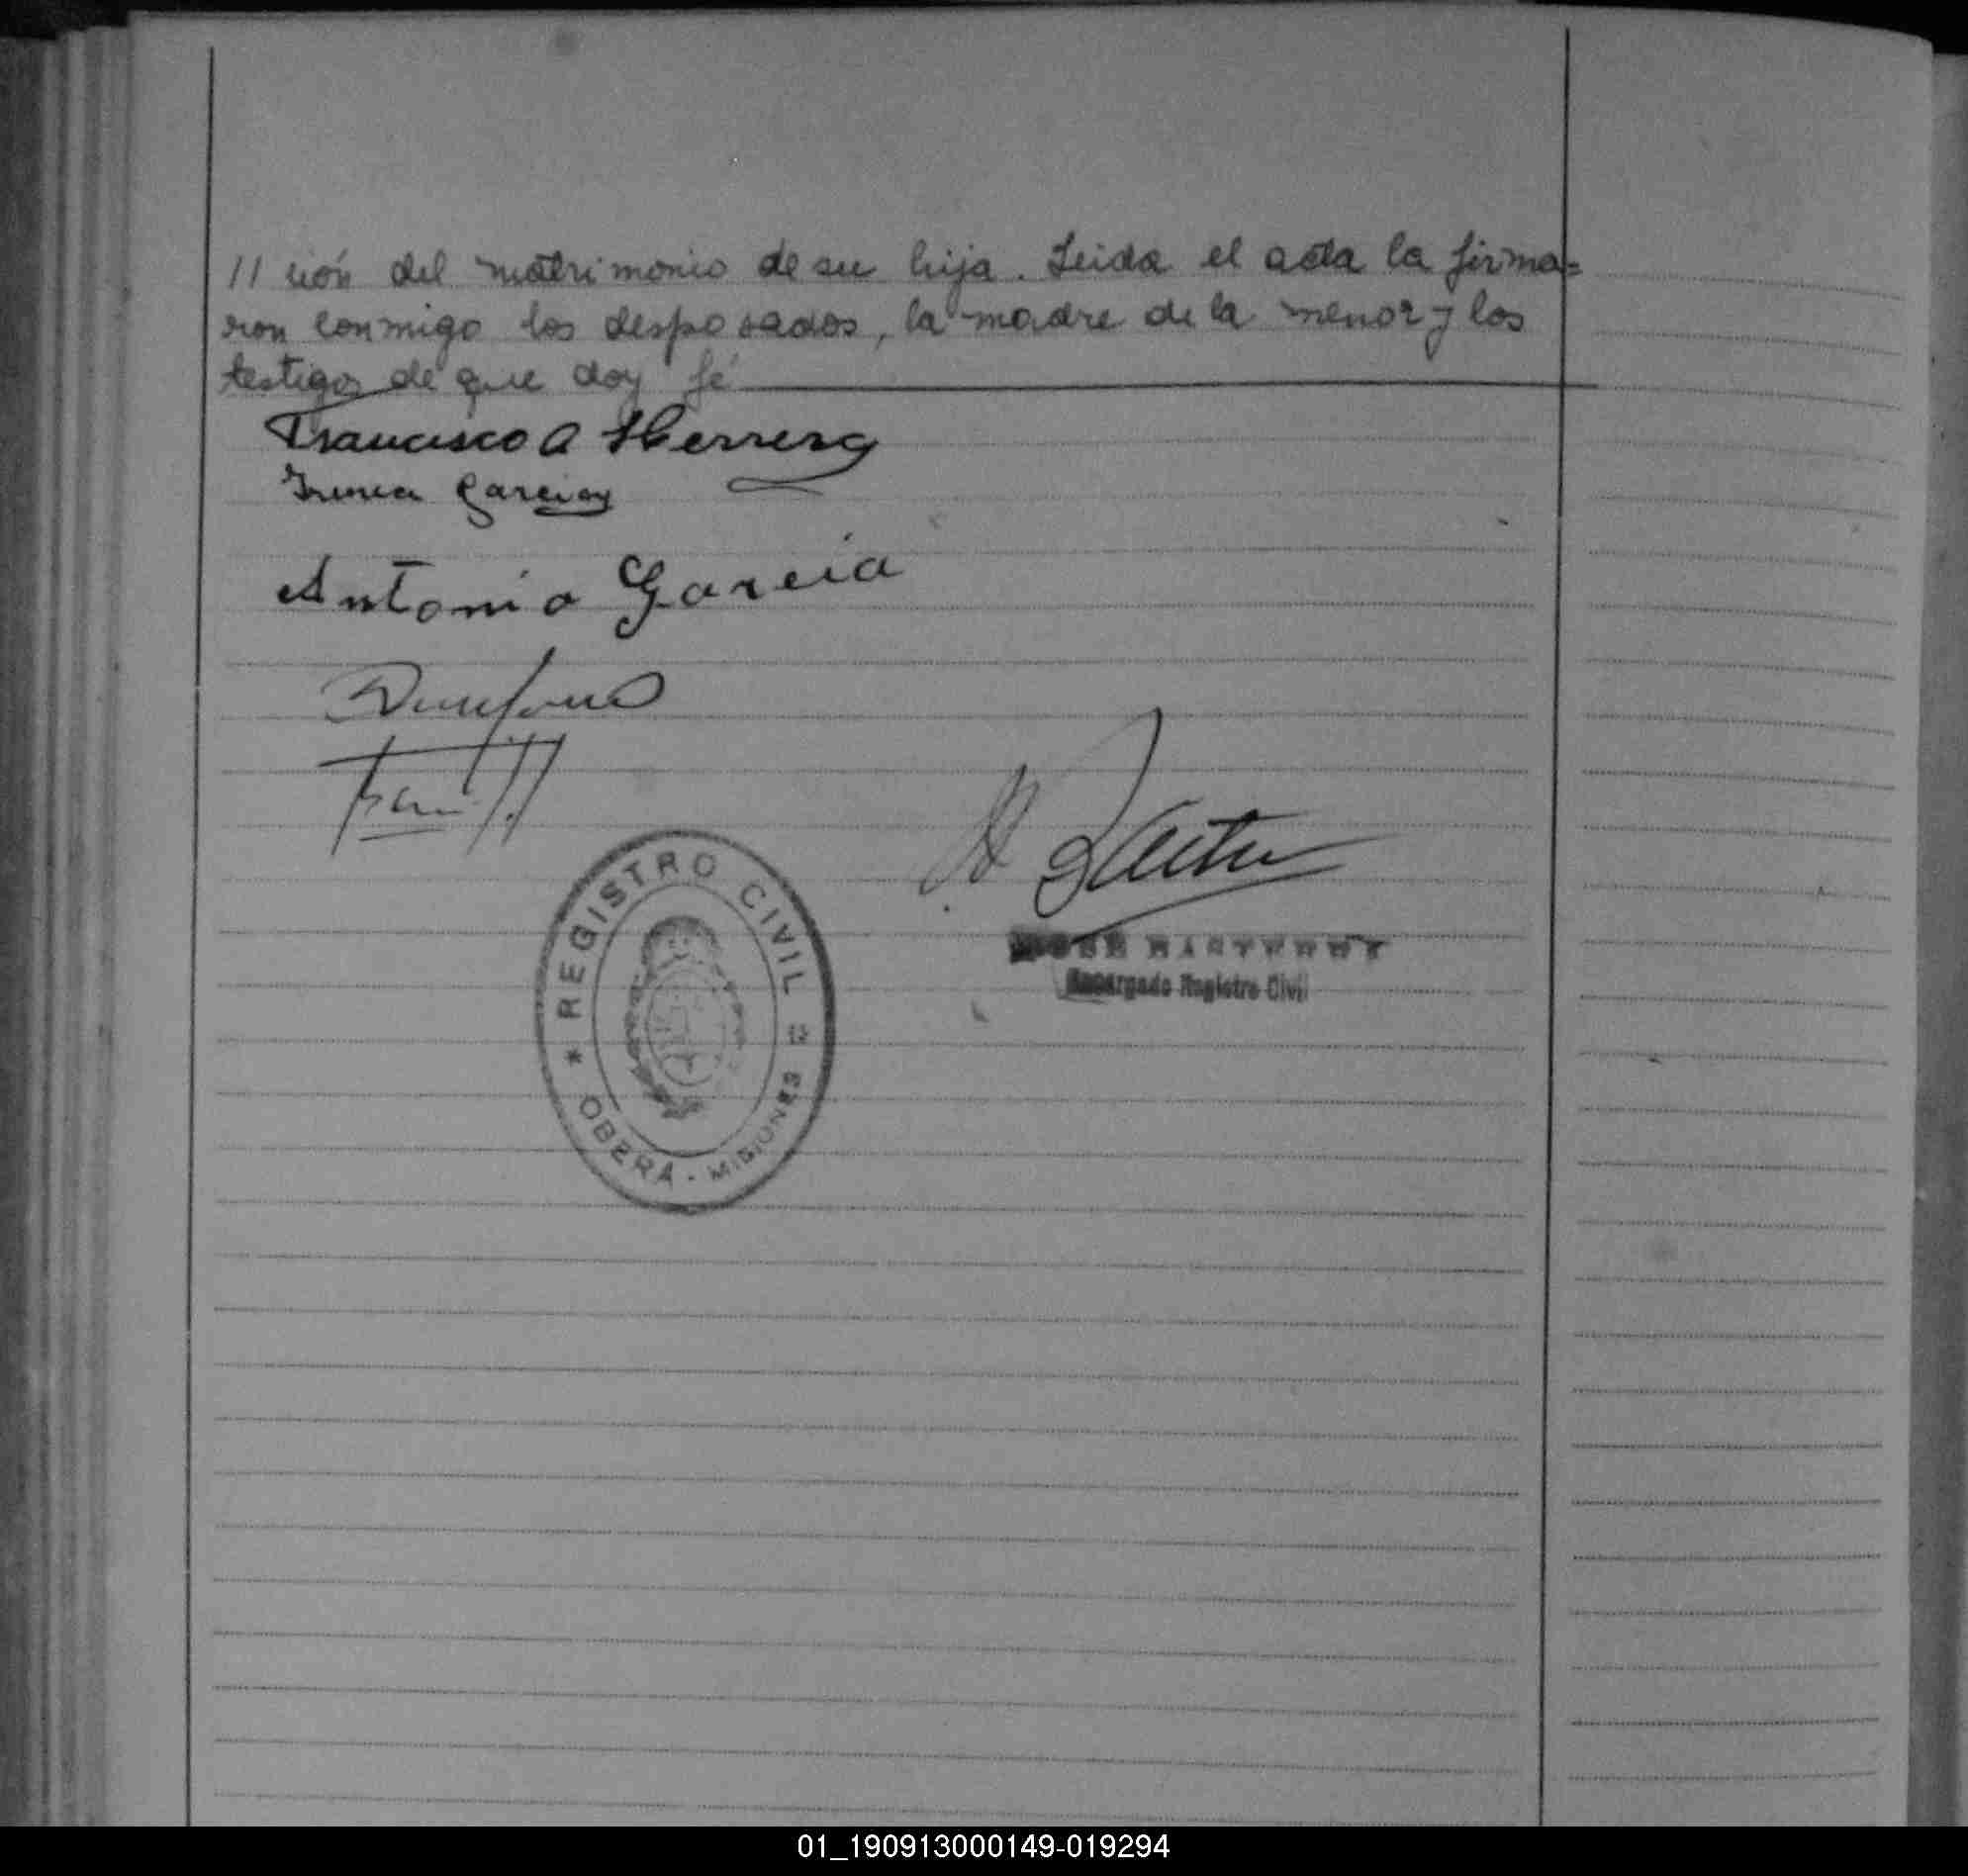 // ción del matrimonio de su hija. Leida el acta la firma=
ron conmigo los desposados, la madre de la menor y los
testigos de que doy fé
Francisco A Herrera
Garcia
Antonio Garcia
REGISTRO CIVIL
* OBERÁ - MISIONES
Encargado Registro Civil
01_190913000149-019294